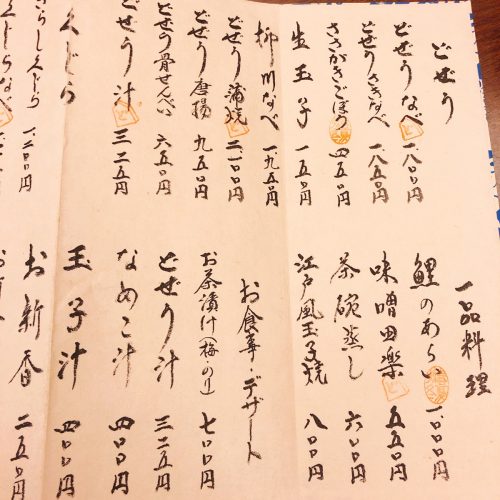 どぜう
どぜうなべ 一、八〇〇円
どぜうさきなべ 一、八五〇円
ささがきごぼう 四五〇円
生玉子 一五〇円
柳川なべ 一、九五〇円
どぜう蒲焼 二、一〇〇円
どぜう唐揚 九五〇円
どぜう骨せんべい 六五〇円
どぜう汁 三二五円
くじら
さらしくじら 一、二〇〇円
くじらなべ
一品料理
鯉のあらい 一、〇〇〇円
味噌田楽 五五〇円
茶碗蒸し 六〇〇円
江戸風玉子焼 八〇〇円
お食事・デザート
お茶漬け(梅・のり) 七〇〇円
どぜう汁 三二五円
なめこ汁 四〇〇円
玉子汁 四〇〇円
お新香 二五〇円